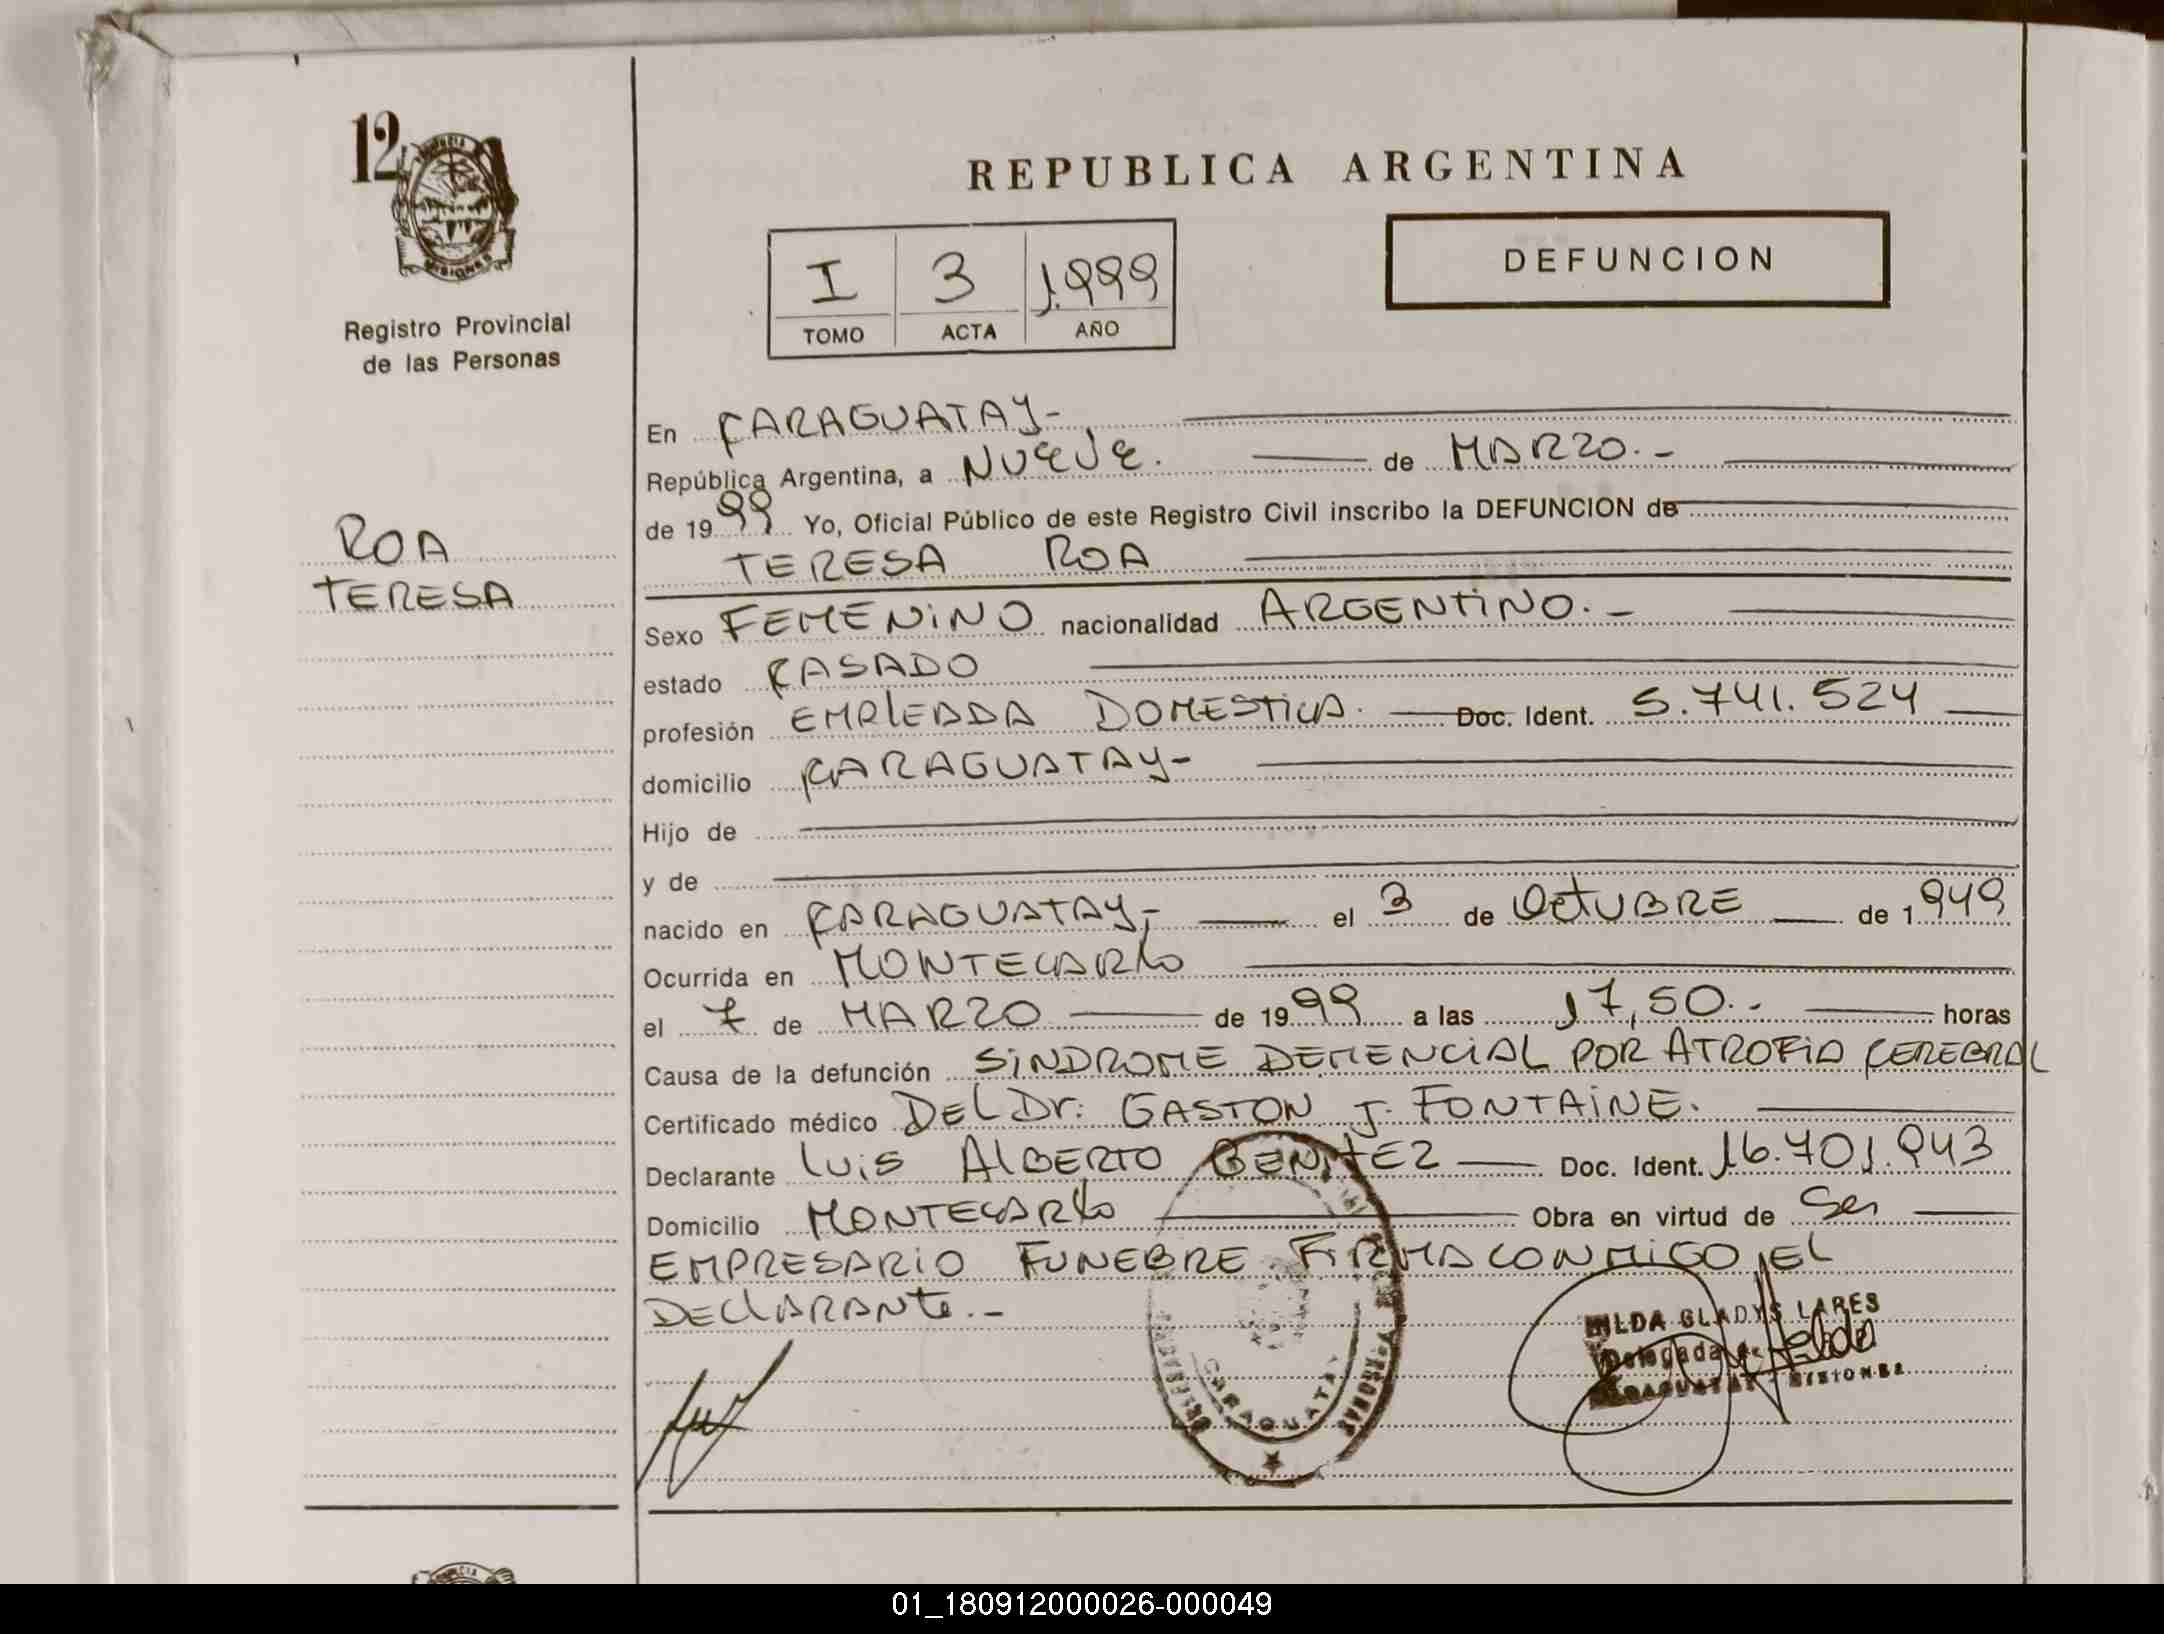 12
PROVINCIA
MISIONES
Registro Provincial
de las Personas
ROA
TERESA
REPUBLICA ARGENTINA
I 3 1.999
TOMO ACTA AÑO
DEFUNCION
En CARAGUATAY-
República Argentina, a NUEVE. de MARZO.-
de 1999 Yo, Oficial Público de este Registro Civil inscribo la DEFUNCION de
TERESA ROA
Sexo FEMENINO nacionalidad ARGENTINO.-
estado CASADO
profesión EMPLEADA DOMESTICA. Doc. Ident. 5.741.524
domicilio CARAGUATAY-
Hijo de
y de
nacido en CARAGUATAY,- el 3 de OCTUBRE de 1949
Ocurrida en MONTECARLO
el 7 de MARZO de 1999 a las 17,50.- horas
Causa de la defunción SINDROME DEMENCIAL POR ATROFIA CEREBRAL
Certificado médico DEL Dr. GASTON J. FONTAINE.
Declarante LUIS ALBERTO BENITEZ Doc. Ident. 16.701.943
Domicilio MONTECARLO Obra en virtud de Ser
EMPRESARIO FUNEBRE FIRMA CONMIGO EL
DECLARANTE.-
CARAGUATAY
HILDA GLADYS LARES
Delegada
CARAGUATAY - MISIONES
01_180912000026-000049